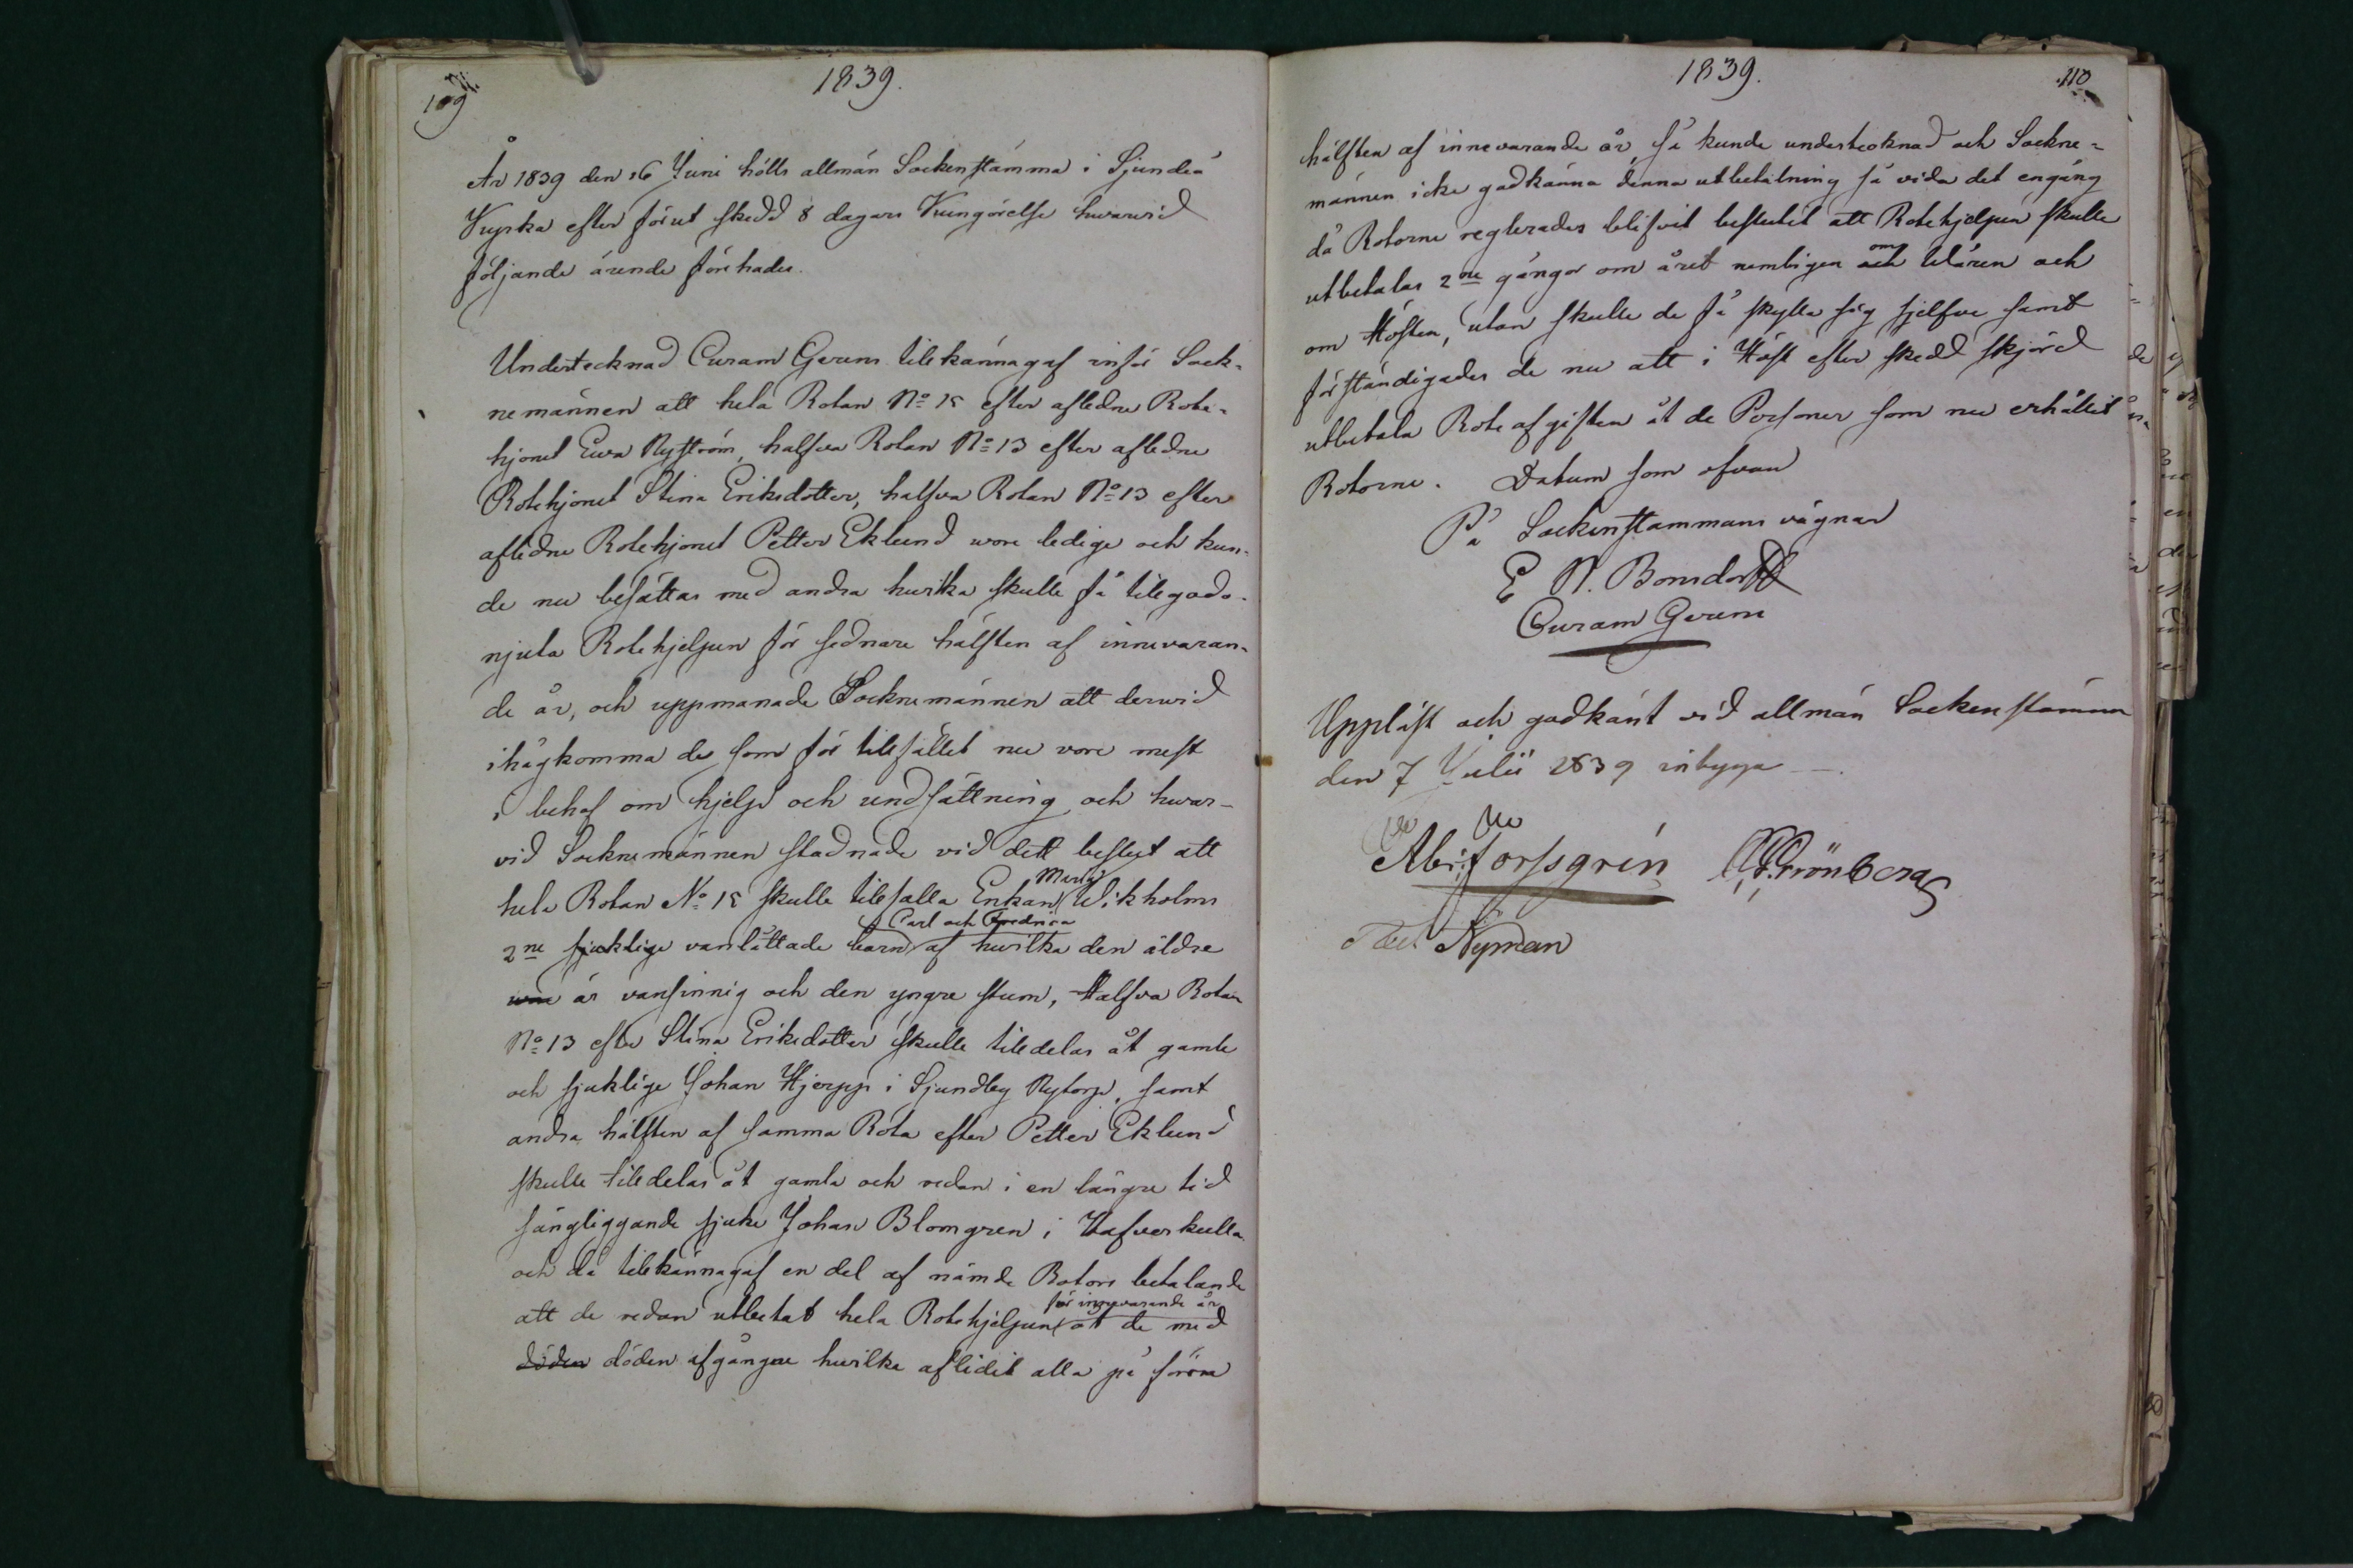 109
1839.
År 1839 den 16 Juni hölls allmän Sockenstämma i Sjundeå
Kyrka efter förut skedd 8 dagars Kungörelse hwarvid
följande ärende förehades.
Undertecknad Curam Gerens tilkännagaf inför Sock-
nemännen att hela Rotan No 15 efter aflidne Rote-
hjonet Ewa Nyström, halfva Rotan No 13 efter aflidne
Rotehjonet Stina Eriksdotter, halfva Rotan No 13 efter
aflidne Rotehjonet Petter Eklund wore ledige och kun-
de nu besättas med andra hvilka skulle få tilgodo-
njuta Rotehjelpen för sednare hälften af innevaran-
de år, och uppmanade Socknemännen att dervid
ihågkomma de som för tilfället nu vore mest
i behof om hjelp och undsättning och hwar-
vid Socknemännen stadnade vid dett beslut att
hela Rotan No 15 skulle tilfalla Enkan Maria Wikholms
2ne sjuklige vanlåttade barn Carl och Fredrica af hwilka den äldre
är vansinnig och den yngre stum, Halfva Rotan
No 13 efter Stina Eriksdotter skulle tildelas åt gamle
och sjuklige Johan Hjerpp i Sjundby Nytorp, samt
andra hälften af samma Rota efter Petter Eklund
skulle tildelas åt gamla och redan i en längre tid
sängliggande sjuke Johan Blomgren i Hafverkulla
och då tilkännagaf en del af nämde Rotors betalande
att de redan utbetat hela Rotehjelpen för innevarande år åt de med
döden döden afgångne hwilka aflidit alla på förra
1839.
110
hälften af innevarande år, så kunde undertecknad och Sockne-
männen icke godkänna denna utbetalning så vida det engång
då Rotorne reglerades blifvit beslutit att Rotehjelpen skulle
utbetalas 2ne gångor om året nemligen och om Våren och
om Hösten, utan skulle de få skylla sig sjelfve samt
förständigades de nu att i Höst efter skedd skjörd
utbetala Roteafgiften åt de Personer som nu erhållit
Rotorne. Datum som ofvan
På Sockenstämmans vägnar
E N. Bonsdorff
Curam Gerens
Uppläst och godkänt vid allmän Sockenstämma
den 7 Julii 1839 intyga
Abr: Forssgrén
Grönberg
Nyman